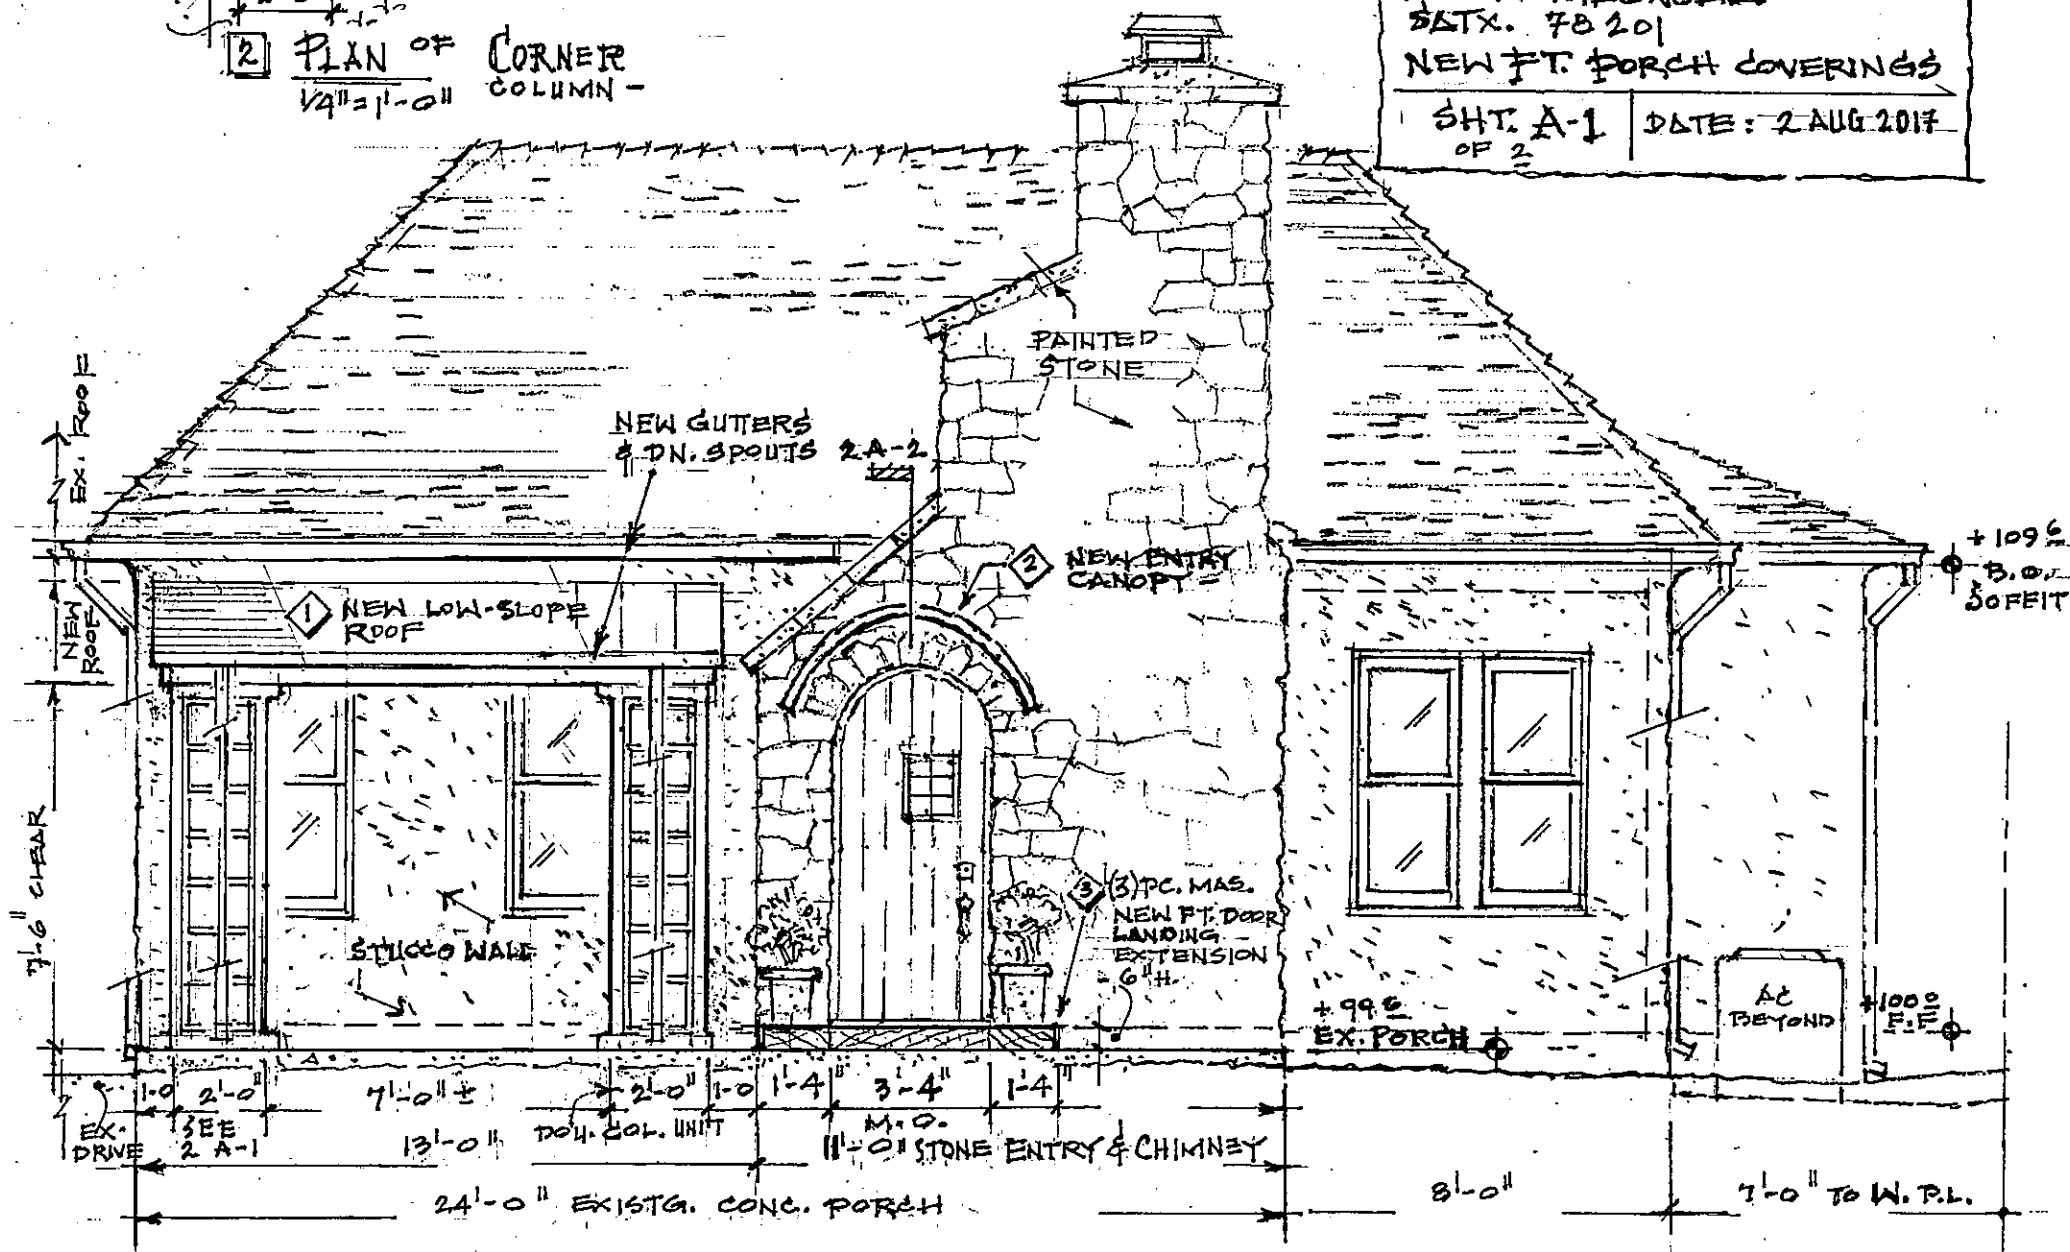 2 PLAN OF CORNER
COLUMN -
1/4" = 1'-0"
SATX. 78201
NEW FT. PORCH COVERINGS
SHT. A-1
OF 2
DATE: 2 AUG 2017
PAINTED
STONE
EX. ROOF
NEW GUTTERS
& DN. SPOUTS
2 A-2
2 NEW ENTRY
CANOPY
1 NEW LOW-SLOPE
ROOF
NEW
ROOF
+109 6
B.O.
SOFFIT
7'-6" CLEAR
STUCCO WALL
3 (3) PC. MAS.
NEW FT. DOOR
LANDING
EXTENSION
6" H.
+99 6
EX. PORCH
AC
BEYOND
+100 0
F.F.
1-0
2'-0"
7'-0" ±
2'-0"
1-0
1'-4"
3'-4"
1'-4"
M.O.
EX.
DRIVE
SEE
2 A-1
13'-0"
DOU. COL. UNIT
11'-0" STONE ENTRY & CHIMNEY
24'-0" EXISTG. CONC. PORCH
8'-0"
7'-0" TO W. P.L.